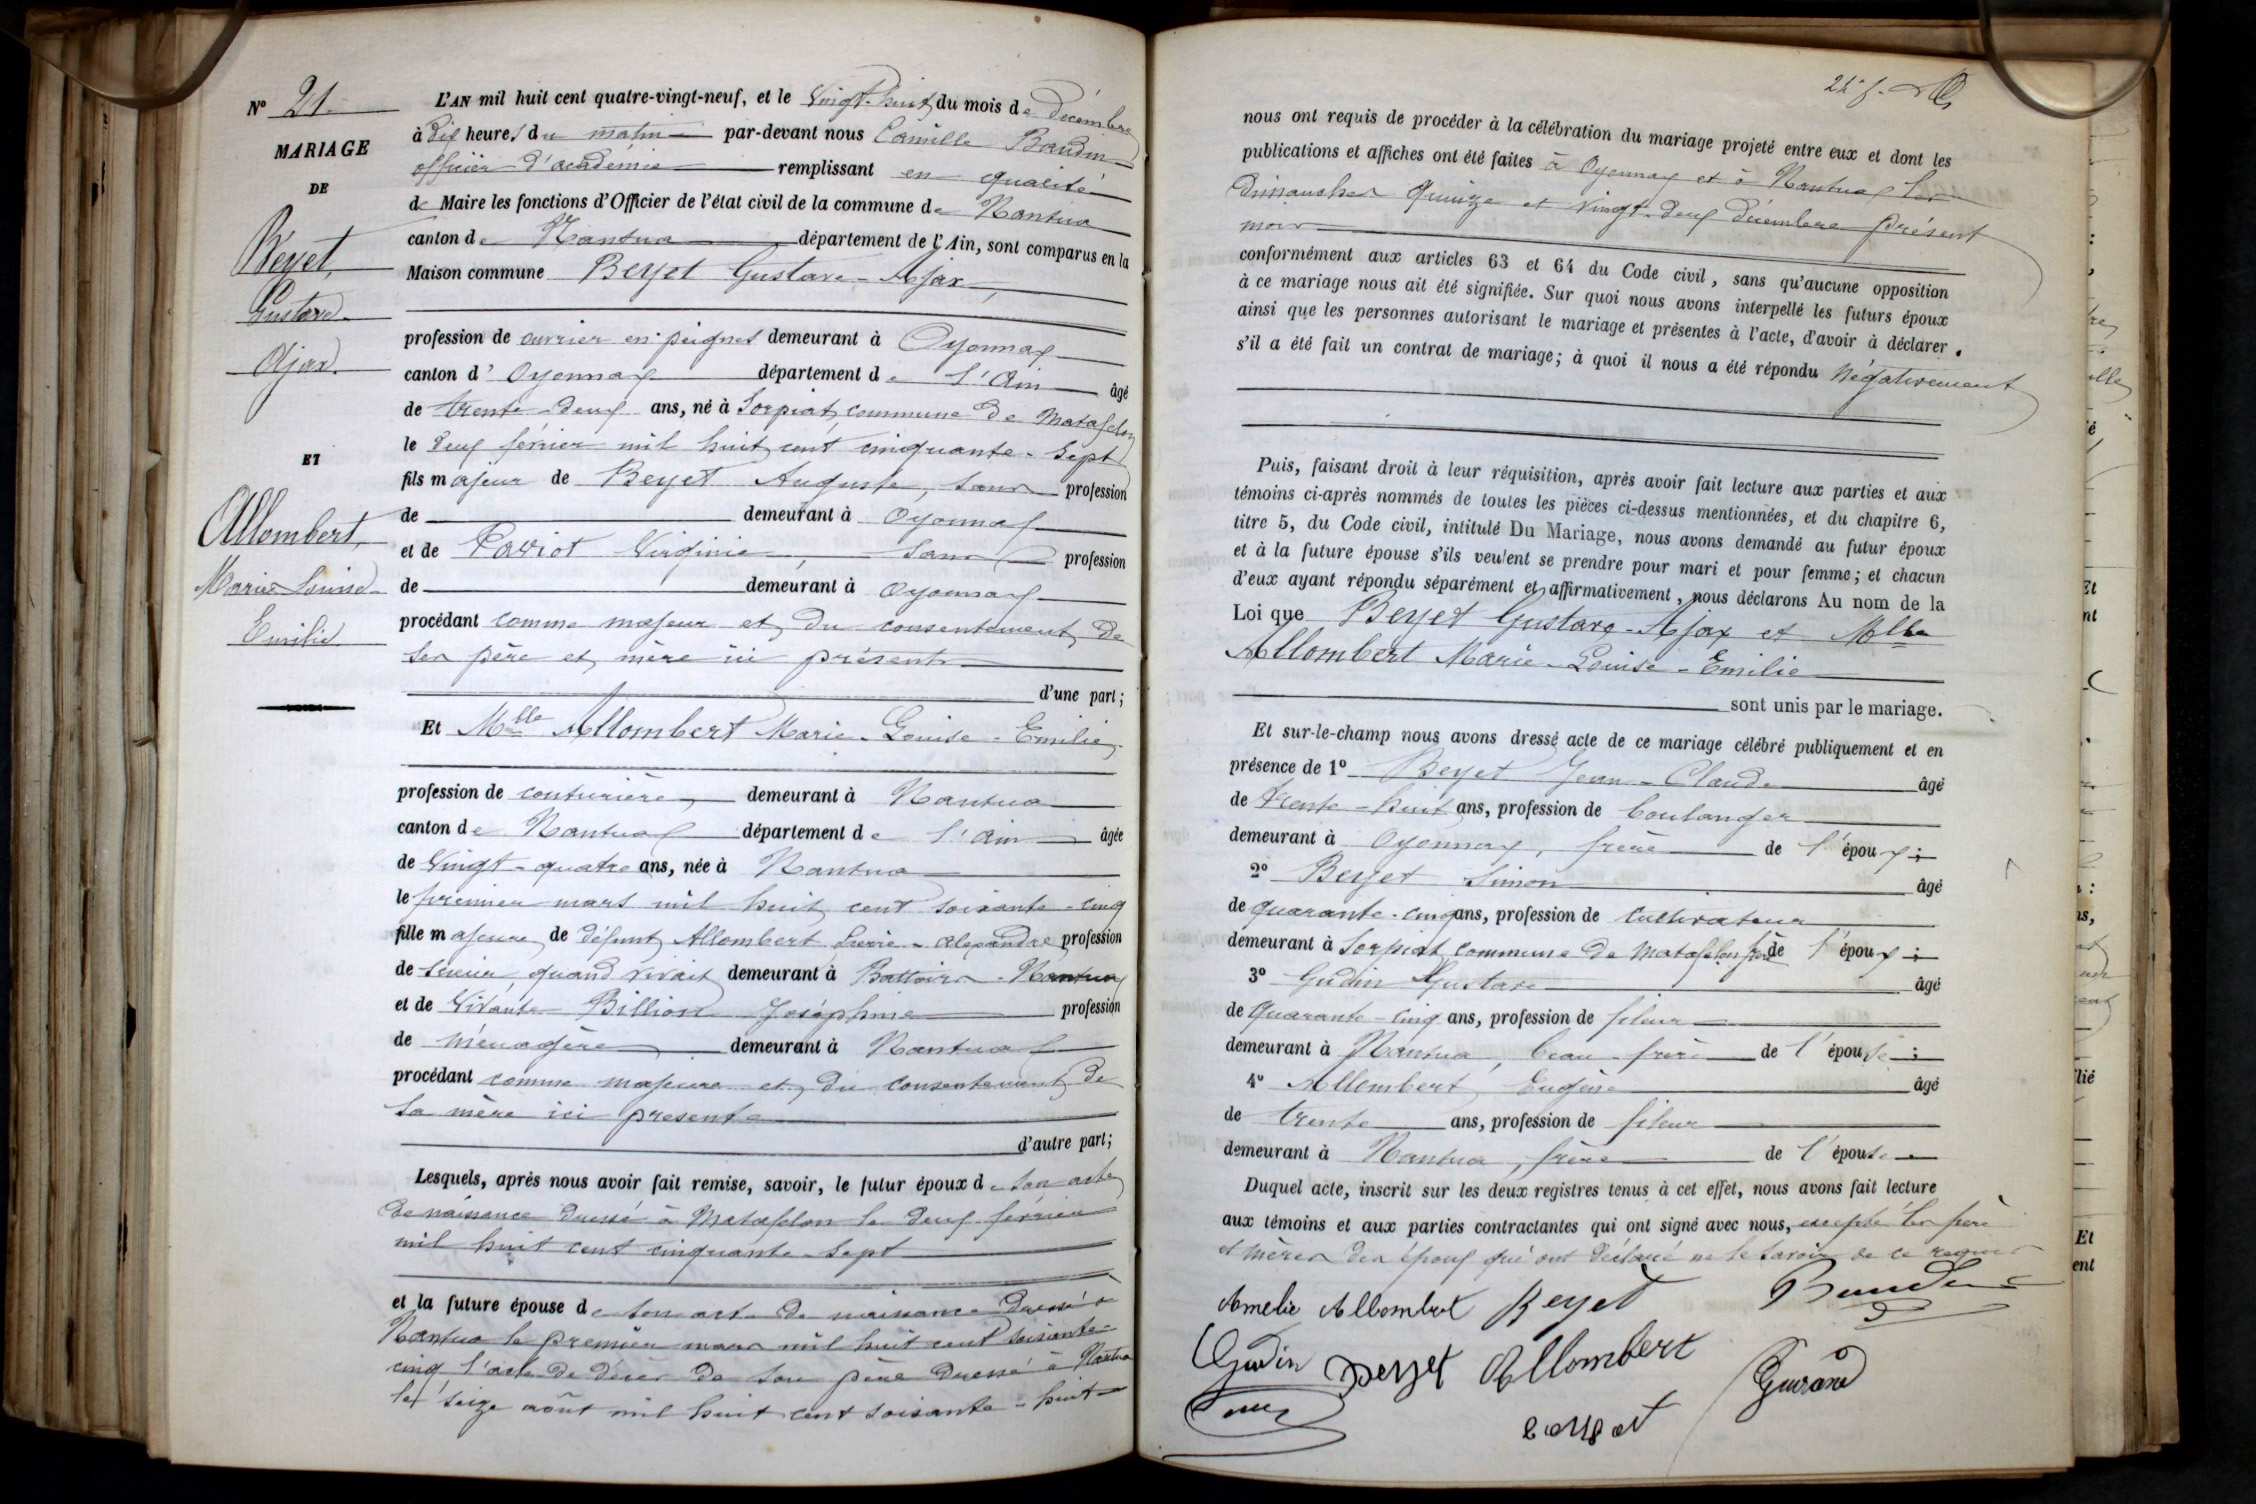 N° 21.
MARIAGE
DE
Béyet,
Gustave
Ajax.
ET
Allombert,
Marie Louise
Emilie
L'AN mil huit cent quatre-vingt-neuf, et le Vingt-huit du mois de Décembre
à dix heures du matin par-devant nous Camille Baudin
officier d'académie remplissant en qualité
de Maire les fonctions d'Officier de l'état civil de la commune de Nantua
canton de Nantua département de l'Ain, sont comparus en la
Maison commune Beyet Gustave-Ajax,
profession de ouvrier en peignes demeurant à Oyonnax
canton d' Oyonnax département de l'Ain âgé
de trente-deux ans, né à Sorpiat, commune de Matafelon
le deux février mil huit cent cinquante-sept
fils majeur de Beyet Auguste, sans profession
de demeurant à Oyonnax
et de Paviot Virginie, sans profession
de demeurant à Oyonnax
procédant comme majeur et du consentement de
ses père et mère ici présents
d'une part;
Et Mlle Allombert Marie-Louise-Emilie,
profession de couturière, demeurant à Nantua
canton de Nantua département de l'Ain âgée
de Vingt-quatre ans, née à Nantua
le premier mars mil huit cent soixante-cinq
fille majeure de défunt Allombert Pierre-Alexandre profession
de scieur quand vivait demeurant à Battoirs-Nantua
et de Vivante Billion Joséphine profession
de ménagère demeurant à Nantua
procédant comme majeure et du consentement de
sa mère ici presente
d'autre part;
Lesquels, après nous avoir fait remise, savoir, le futur époux de son acte
de naissance dressé à Matafelon le deux février
mil huit cent cinquante-sept
et la future épouse de son acte de naissance dressé à
Nantua le premier mars mil huit cent soixante-
cinq l'acte de décès de son père dressé à Nantua
le seize août mil huit cent soixante-huit
nous ont requis de procéder à la célébration du mariage projeté entre eux et dont les
publications et affiches ont été faites à Oyonnax et à Nantua les
dimanches quinze et vingt-deux décembre présent
mois
conformément aux articles 63 et 64 du Code civil, sans qu'aucune opposition
à ce mariage nous ait été signifiée. Sur quoi nous avons interpellé les futurs époux
ainsi que les personnes autorisant le mariage et présentes à l'acte, d'avoir à déclarer
s'il a été fait un contrat de mariage; à quoi il nous a été répondu Négativement
Puis, faisant droit à leur réquisition, après avoir fait lecture aux parties et aux
témoins ci-après nommés de toutes les pièces ci-dessus mentionnées, et du chapitre 6,
titre 5, du Code civil, intitulé Du Mariage, nous avons demandé au futur époux
et à la future épouse s'ils veulent se prendre pour mari et pour femme; et chacun
d'eux ayant répondu séparément et affirmativement, nous déclarons Au nom de la
Loi que Beyet Gustave-Ajax et Mlle
Allombert Marie-Louise-Emilie
sont unis par le mariage.
Et sur-le-champ nous avons dressé acte de ce mariage célébré publiquement et en
présence de 1° Beyet Jean-Claude âgé
de trente-huit ans, profession de boulanger
demeurant à Oyonnax, frère de l'époux;
2° Beyet Simon âgé
de quarante-cinq ans, profession de cultivateur
demeurant à Sorpiat commune de Matafelon de l'époux;
3° Gudin Gustave âgé
de Quarante-cinq ans, profession de fileur
demeurant à Nantua, beau-frère de l'épouse;
4° Allombert Eugène âgé
de trente ans, profession de fileur
demeurant à Nantua, frère de l'épouse
Duquel acte, inscrit sur les deux registres tenus à cet effet, nous avons fait lecture
aux témoins et aux parties contractantes qui ont signé avec nous, excepté les père
et mères des époux qui ont déclaré ne le savoir de ce requis
Amelie Allombert Beyet
Gudin Beyet Allombert